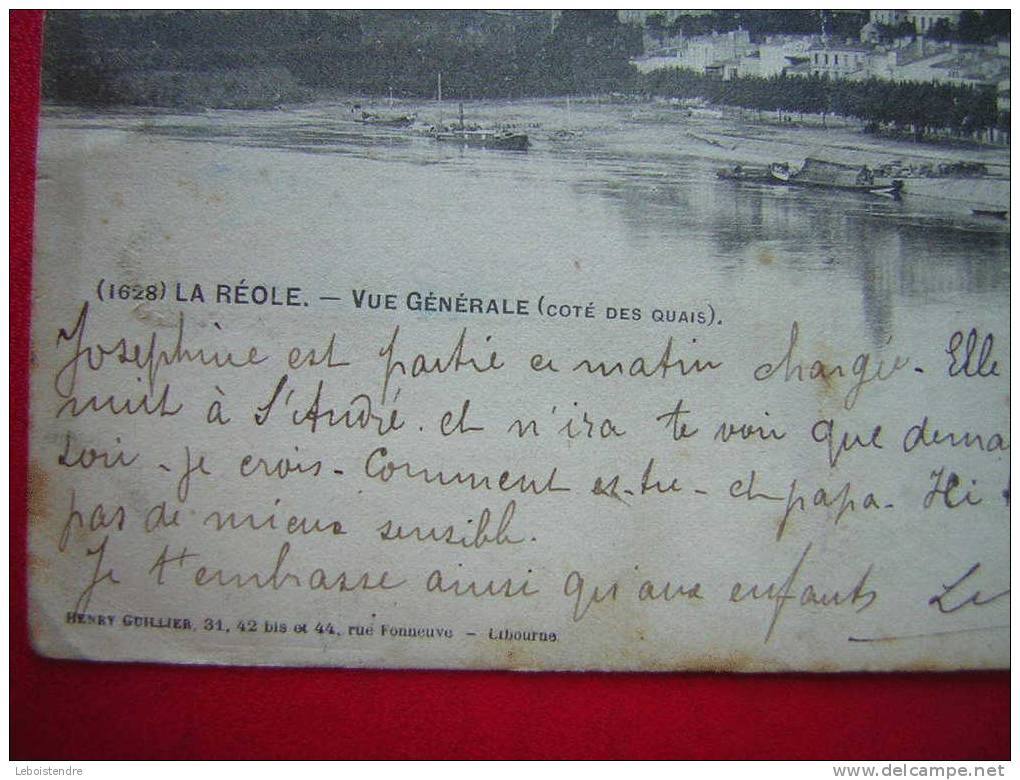 (1628) LA RÉOLE. — VUE GÉNÉRALE (COTÉ DES QUAIS).
Josephine est partie ce matin chargée. Elle
nuit à St André. et n'ira te voir que dema
soir. je crois. Comment es-tu. et papa. Ici
pas de mieux sensible.
Je t'embrasse ainsi qu'aux enfants
HENRY GUILLIER, 31, 42 bis et 44, rue Fonneuve — Libourne.
Leboistendre
www.delcampe.net